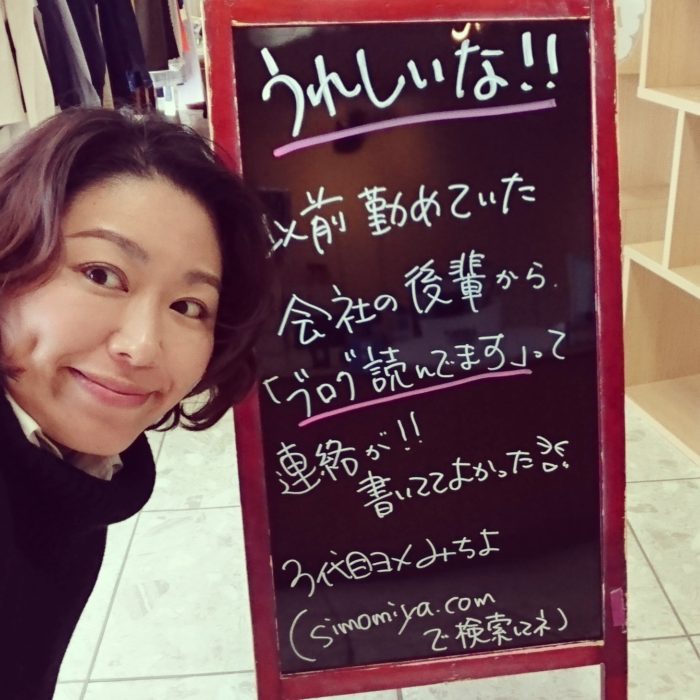 うれしいな!!
以前勤めていた
会社の後輩から
「ブログ読んでます」って
連絡が!!
書いててよかった
3代目ヨメみちよ
(simomiya.com
で検索してネ)